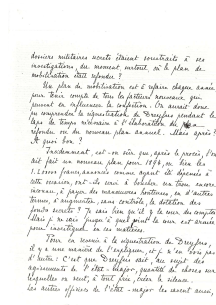 dossiers militaires secrets étaient soustraits à ses
investigations, au moment, surtout, où le plan de
mobilisation était refondu ?
Un plan de mobilisation est à refaire chaque année
pour tenir compte de tous les facteurs nouveaux qui
peuvent en influencer la confection. On aurait donc
pu comprendre la réintégration de Dreyfus pendant le
laps de temps nécessaire à l'élaboration du
refondu ou du nouveau plan annuel. Mais après ?
À quoi bon ?
Évidemment, est-on sûr que, après le procès, l'on
ait fait un nouveau plan pour 1895, ou bien les
francs, annoncés comme ayant été dépensés à
cette
inconnu, à payer des manœuvres honteuses, en d'autres
termes, à augmenter, sans contrôle, la dotation des
fonds secrets ? Je sais bien qu'il y a la cour des comptes
Mais je ne sais jusqu'à quel point la cour est armée
pour investiguer en ces matières.
Pour en revenir à la réintégration de Dreyfus,
il y a une manière de l'expliquer, et je n'en vois pas
d'autre : C'est que Dreyfus sait, au sujet des
agissements de l'état-major, quantité de choses sur
lesquelles on veut, à tout prix, faire le silence.
Les autres officiers de l'état-major les savent aussi,